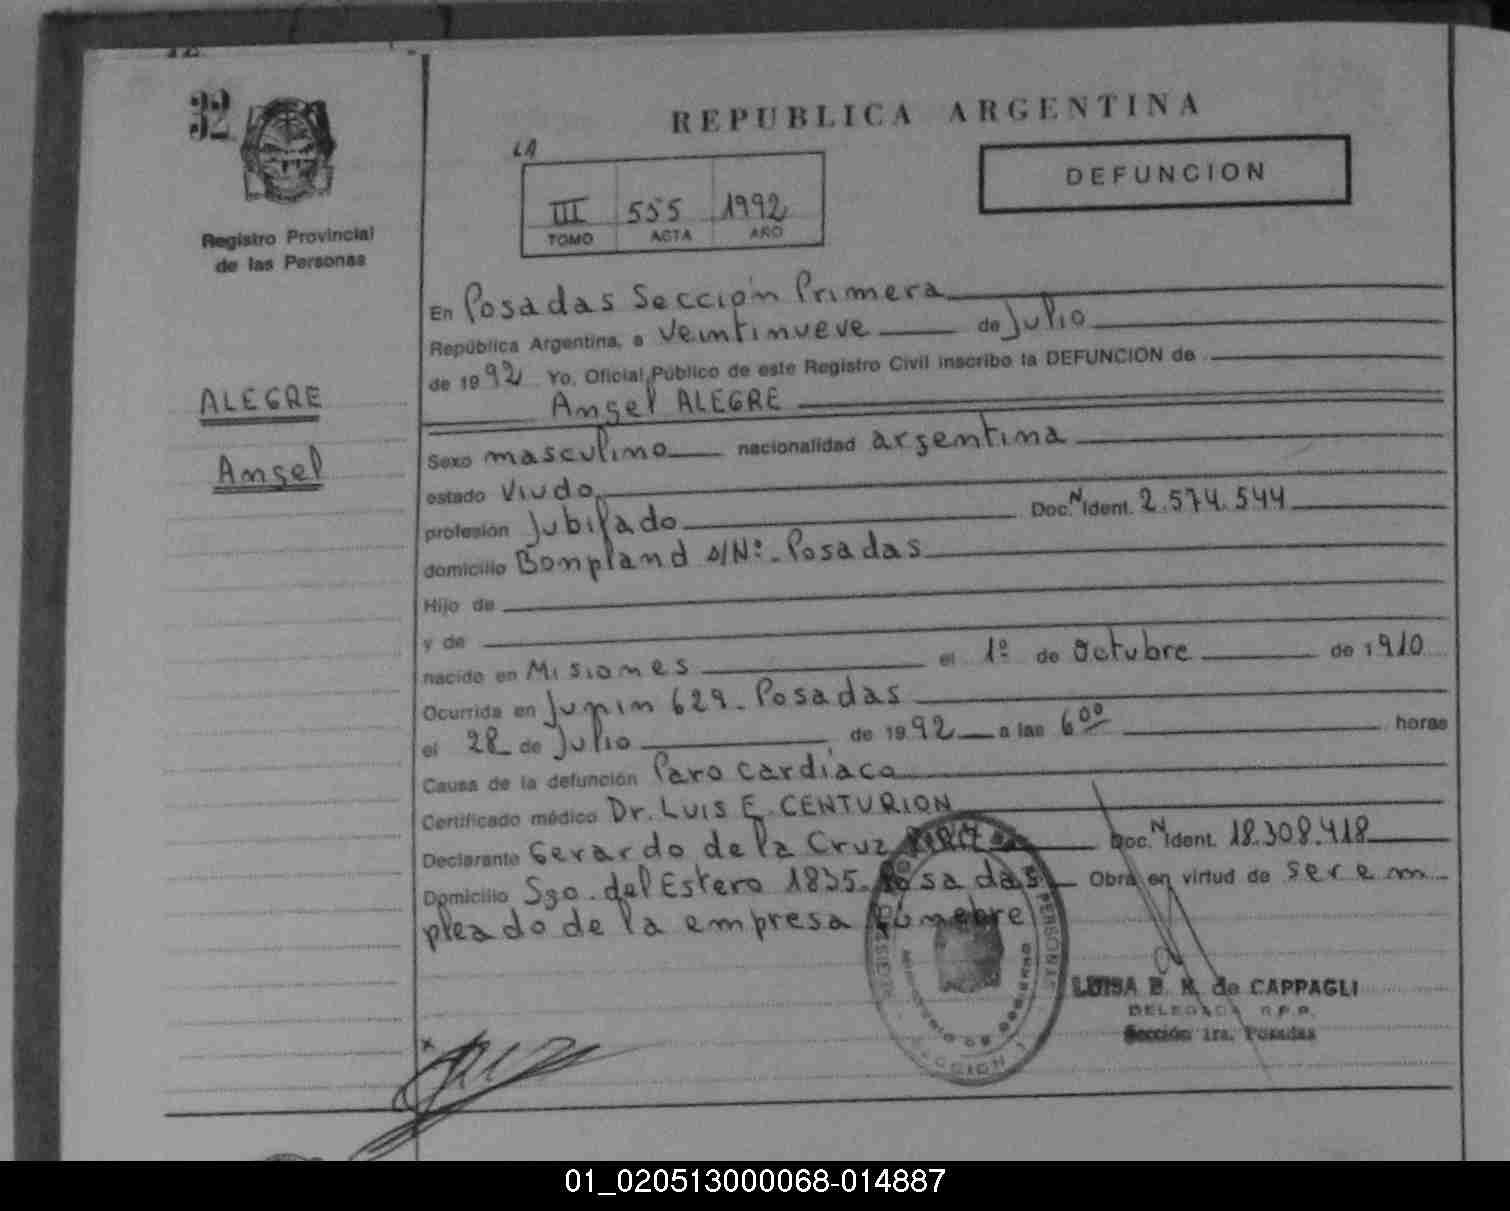 32
REPUBLICA ARGENTINA
LA
DEFUNCION
III 555 1992
TOMO ACTA AÑO
Registro Provincial
de las Personas
ALEGRE
Angel
En Posadas Sección Primera
República Argentina, a veintinueve de Julio
de 1992 Yo, Oficial Público de este Registro Civil inscribo la DEFUNCION de
Angel ALEGRE
Sexo masculino nacionalidad argentina
estado Viudo
profesión Jubilado Doc. N Ident. 2.574.544
domicilio Bonpland s/Nº.- Posadas
Hijo de
y de
nacido en Misiones el 1º de octubre de 1910
Ocurrida en Junin 629- Posadas
el 28 de Julio de 1992 a las 6 00 horas
Causa de la defunción Paro cardíaco
Certificado médico Dr. LUIS E. CENTURION
Declarante Gerardo de la Cruz Doc. N Ident. 18.308.418
Domicilio Sgo. del Estero 1835. Posadas Obra en virtud de ser em-
pleado de la empresa fúnebre
PERSONAS
MINISTERIO DE GOBIERNO
SECCION 1
LUISA B. R. de CAPPAGLI
DELEGADA R.P.P.
Sección 1ra. Posadas
01_020513000068-014887